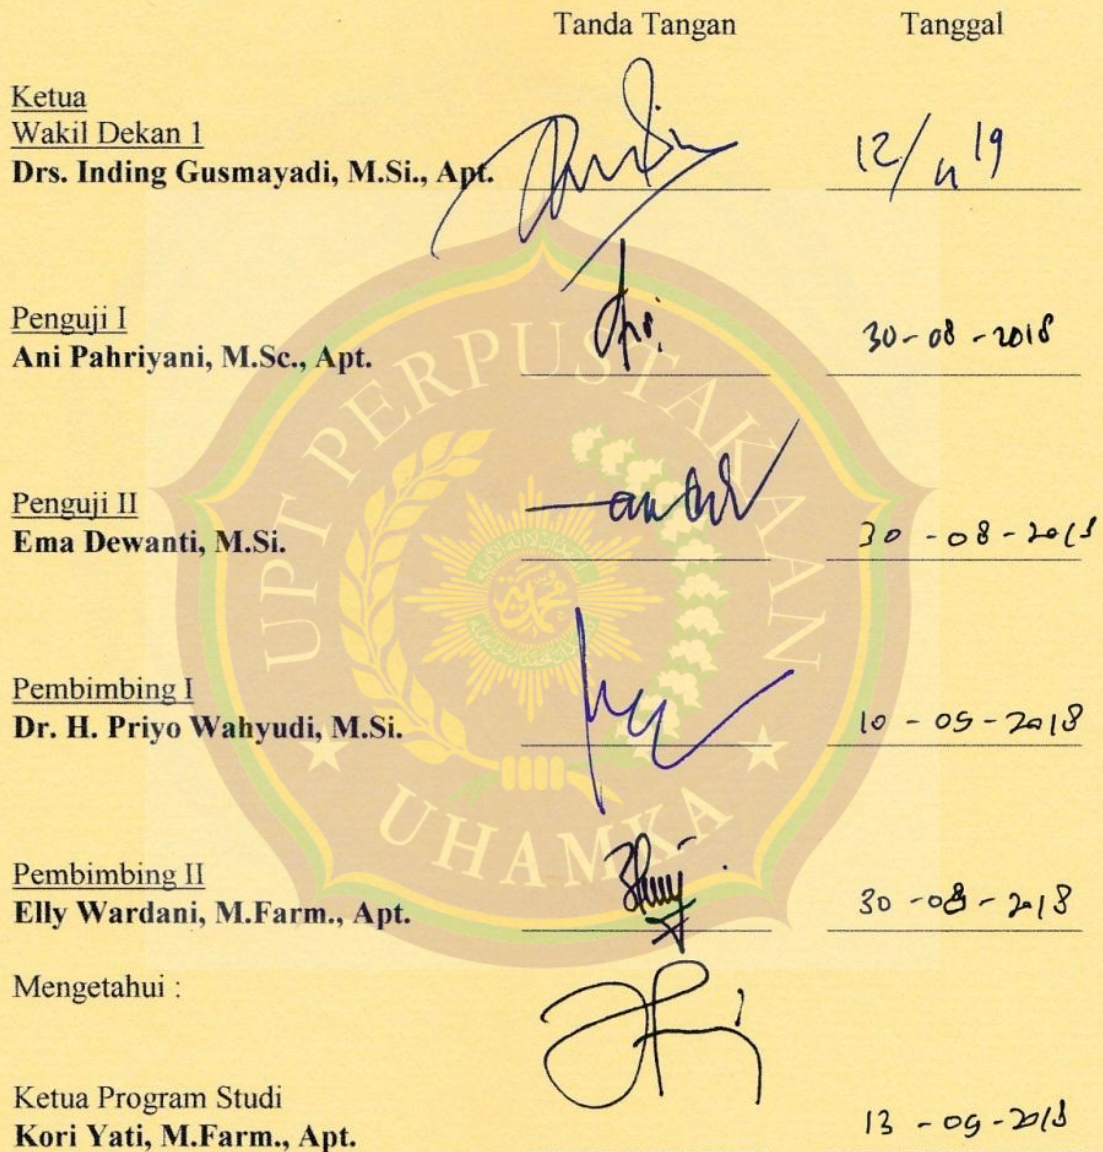 Tanda Tangan Tanggal
Ketua
Wakil Dekan 1
Drs. Inding Gusmayadi, M.Si., Apt. 12/ 19
Penguji I
Ani Pahriyani, M.Sc., Apt. 30-08-2018
Penguji II
Ema Dewanti, M.Si. 30-08-2018
Pembimbing I
Dr. H. Priyo Wahyudi, M.Si. 10-09-2018
Pembimbing II
Elly Wardani, M.Farm., Apt. 30-08-2018
Mengetahui :
Ketua Program Studi
Kori Yati, M.Farm., Apt. 13-09-2018
UPT PERPUSTAKAAN
UHAMKA